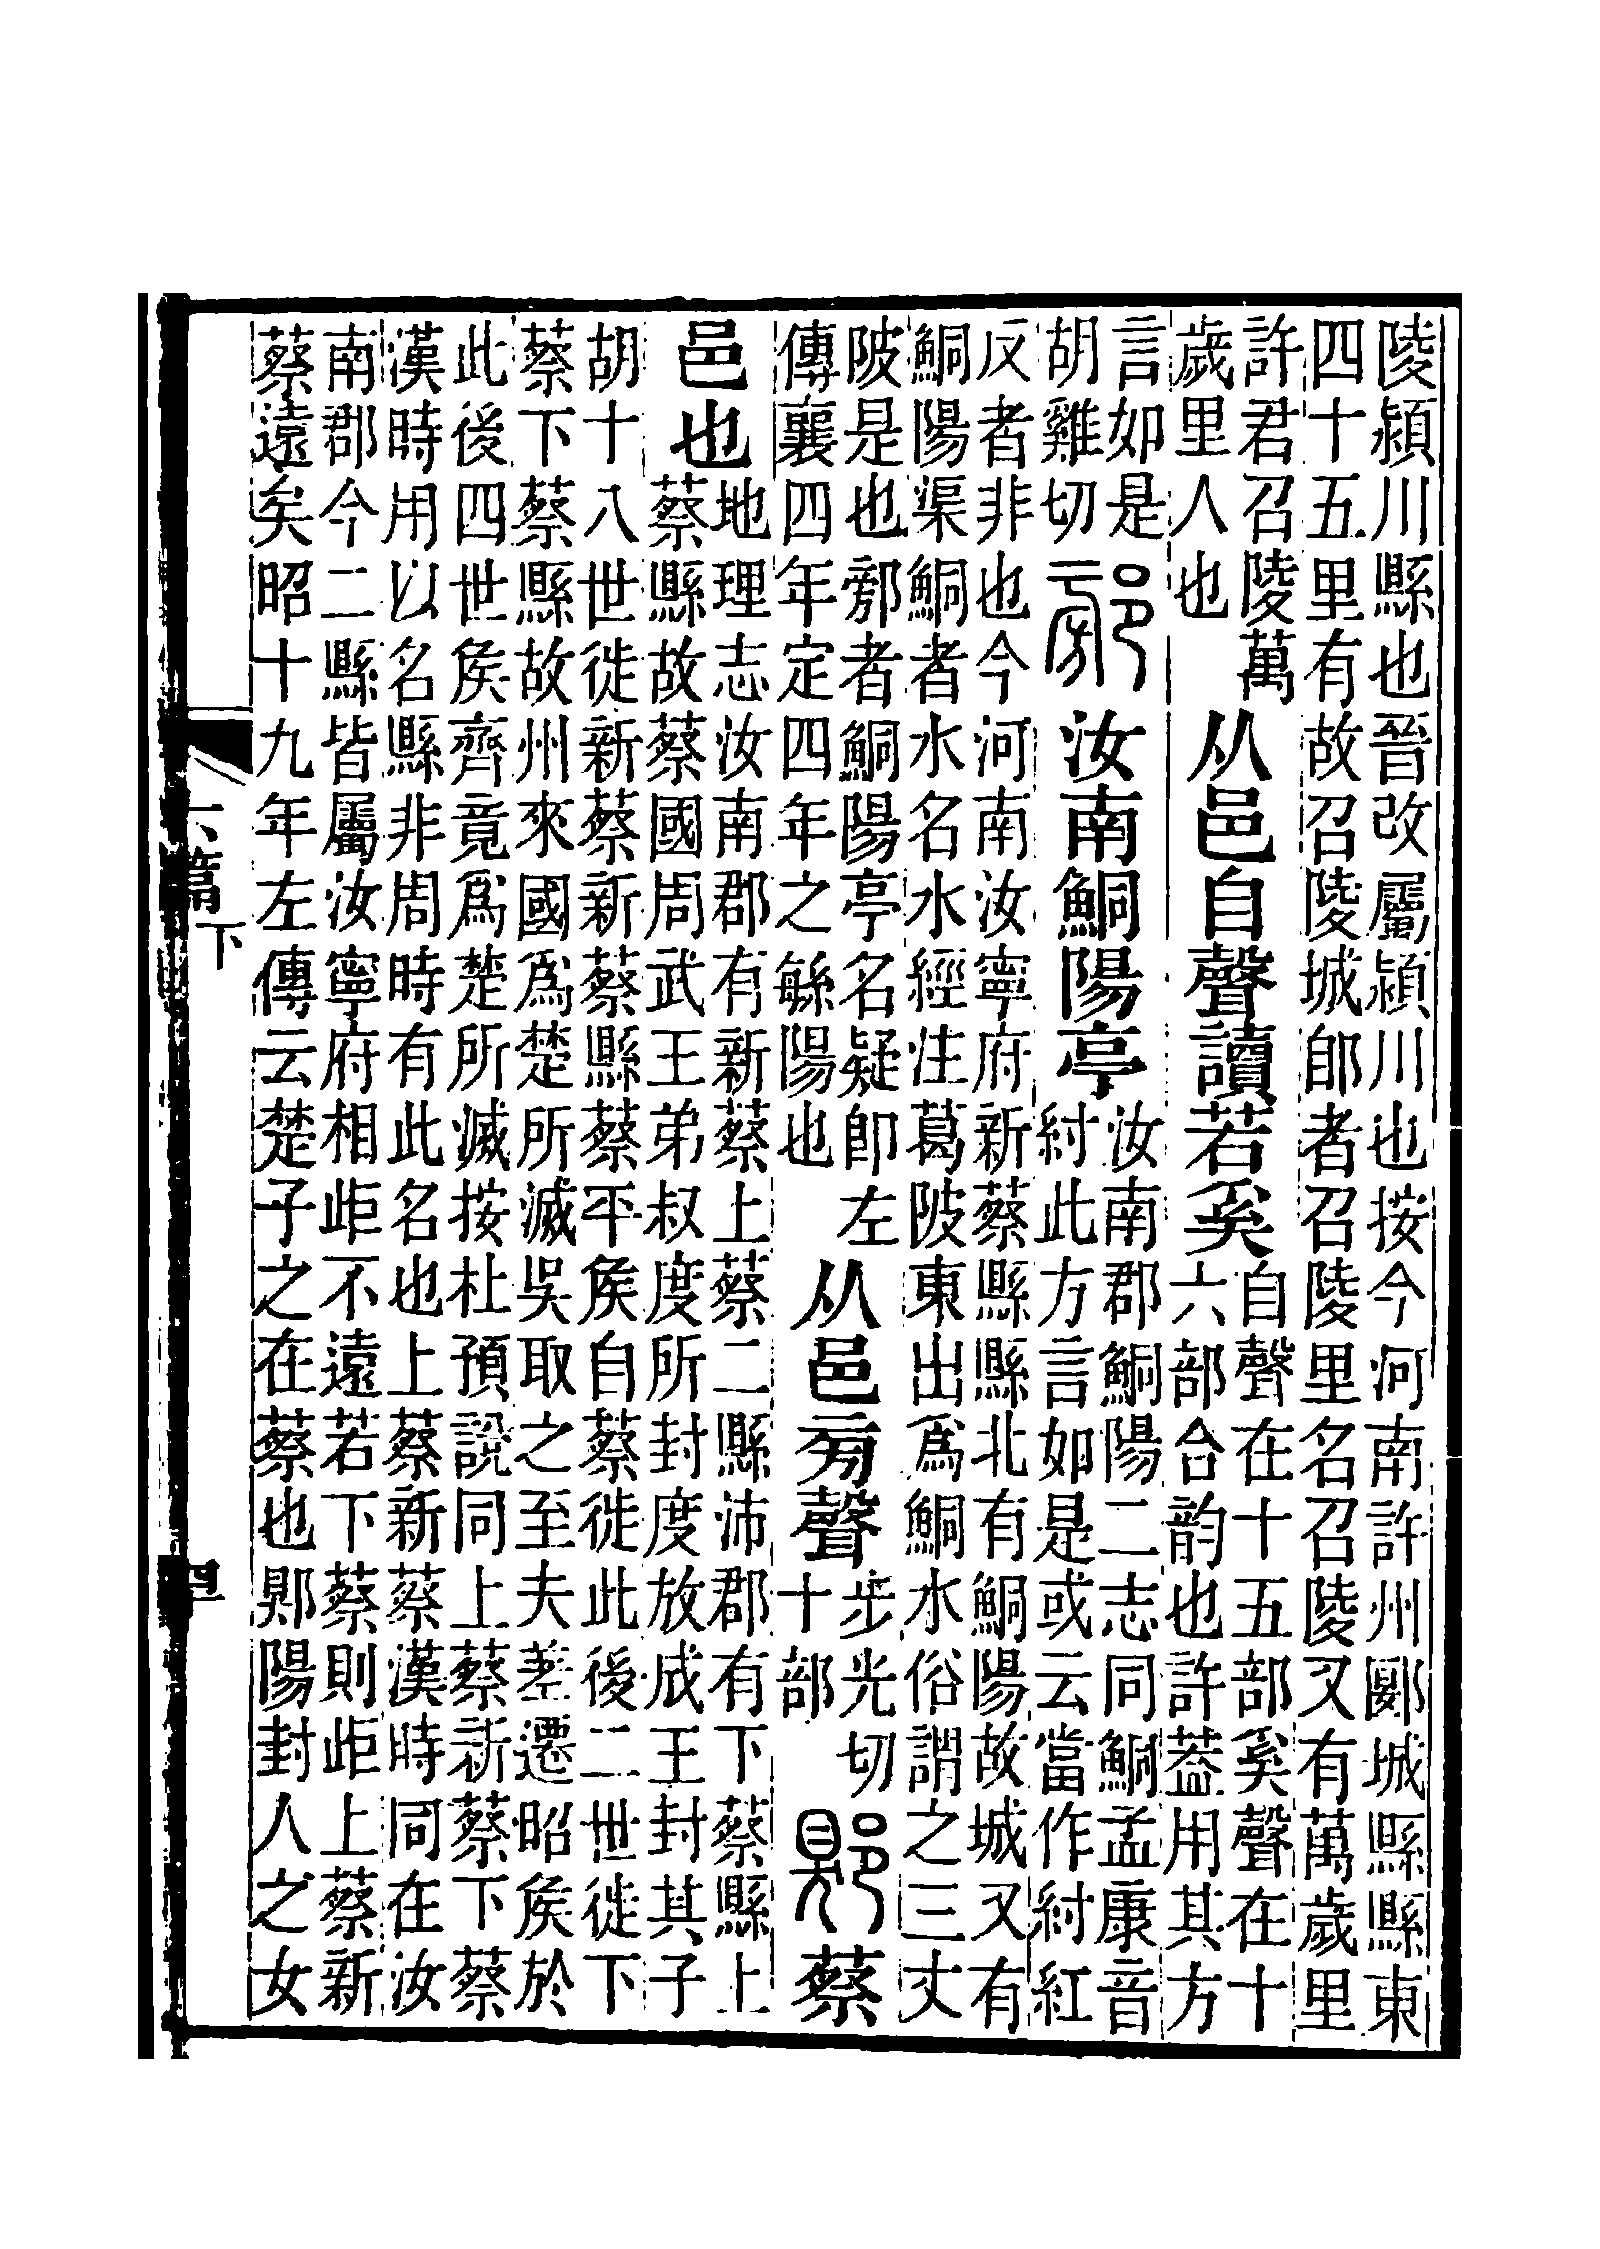 陵潁川縣也晉改屬潁川也按今河南許州郾城縣縣東
四十五里有故召陵城郋者召陵里名召陵又有萬歲里
許君召陵萬
歲里人也
从邑自聲讀若奚
自聲在十五部奚聲在十
六部合韵也許蓋用其方
言如是
胡雞切
䣙汝南鮦陽亭
汝南郡鮦陽二志同鮦孟康音
紂此方言如是或云當作紂紅
反者非也今河南汝寧府新蔡縣縣北有鮦陽故城又有
鮦陽渠鮦者水名水經注葛陂東出爲鮦水俗謂之三丈
陂是也䣙者鮦陽亭名疑卽左
傳襄四年定四年之緐陽也
从邑㫄聲
步光切
十部
郹蔡
邑也
地理志汝南郡有新蔡上蔡二縣沛郡有下蔡縣上
蔡縣故蔡國周武王弟叔度所封度放成王封其子
胡十八世徙新蔡新蔡縣蔡平矦自蔡徙此後二世徙下
蔡下蔡縣故州來國爲楚所滅吳取之至夫差遷昭矦於
此後四世矦齊竟爲楚所滅按杜預說同上蔡新蔡下蔡
漢時用以名縣非周時有此名也上蔡新蔡漢時同在汝
南郡今二縣皆屬汝寧府相距不遠若下蔡則距上蔡新
蔡遠矣昭十九年左傳云楚子之在蔡也郹陽封人之女
六篇下